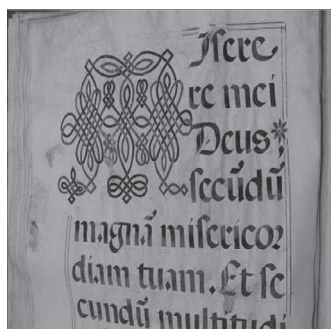 Misere
re mei
Deus*
secūdū
magnā misericor
diam tuam. Et se
cundū multitudi